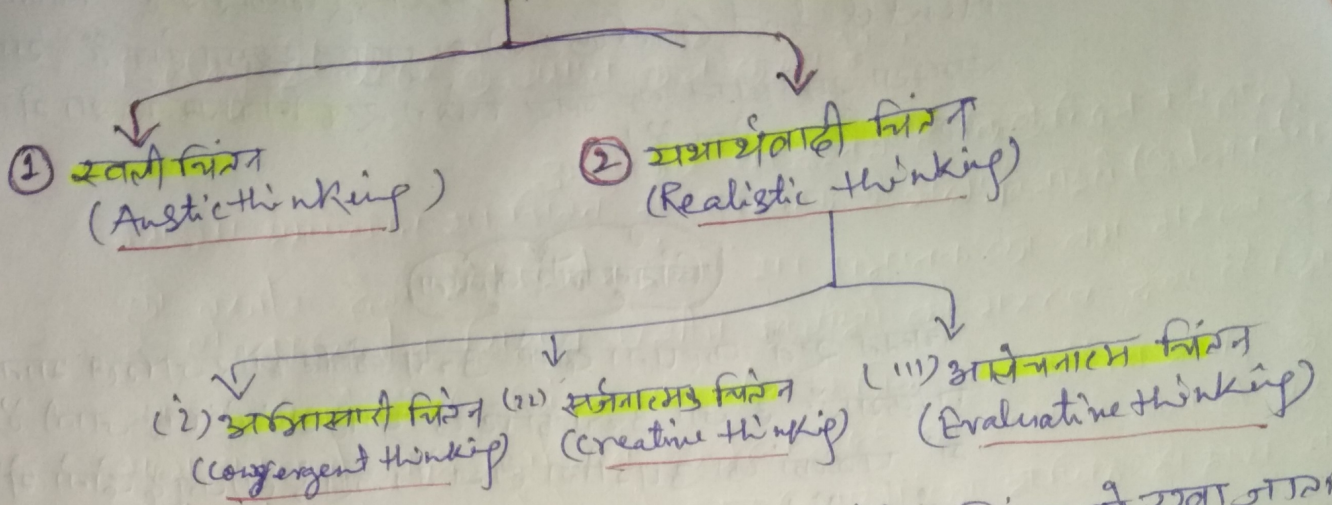 ① स्वली चिंतन
(Austic thinking)
② यथार्थवादी चिंतन
(Realistic thinking)
(i) अभिसारी चिंतन
(Convergent thinking)
(ii) सर्जनात्मक चिंतन
(Creative thinking)
(iii) आलोचनात्म चिंतन
(Evaluative thinking)